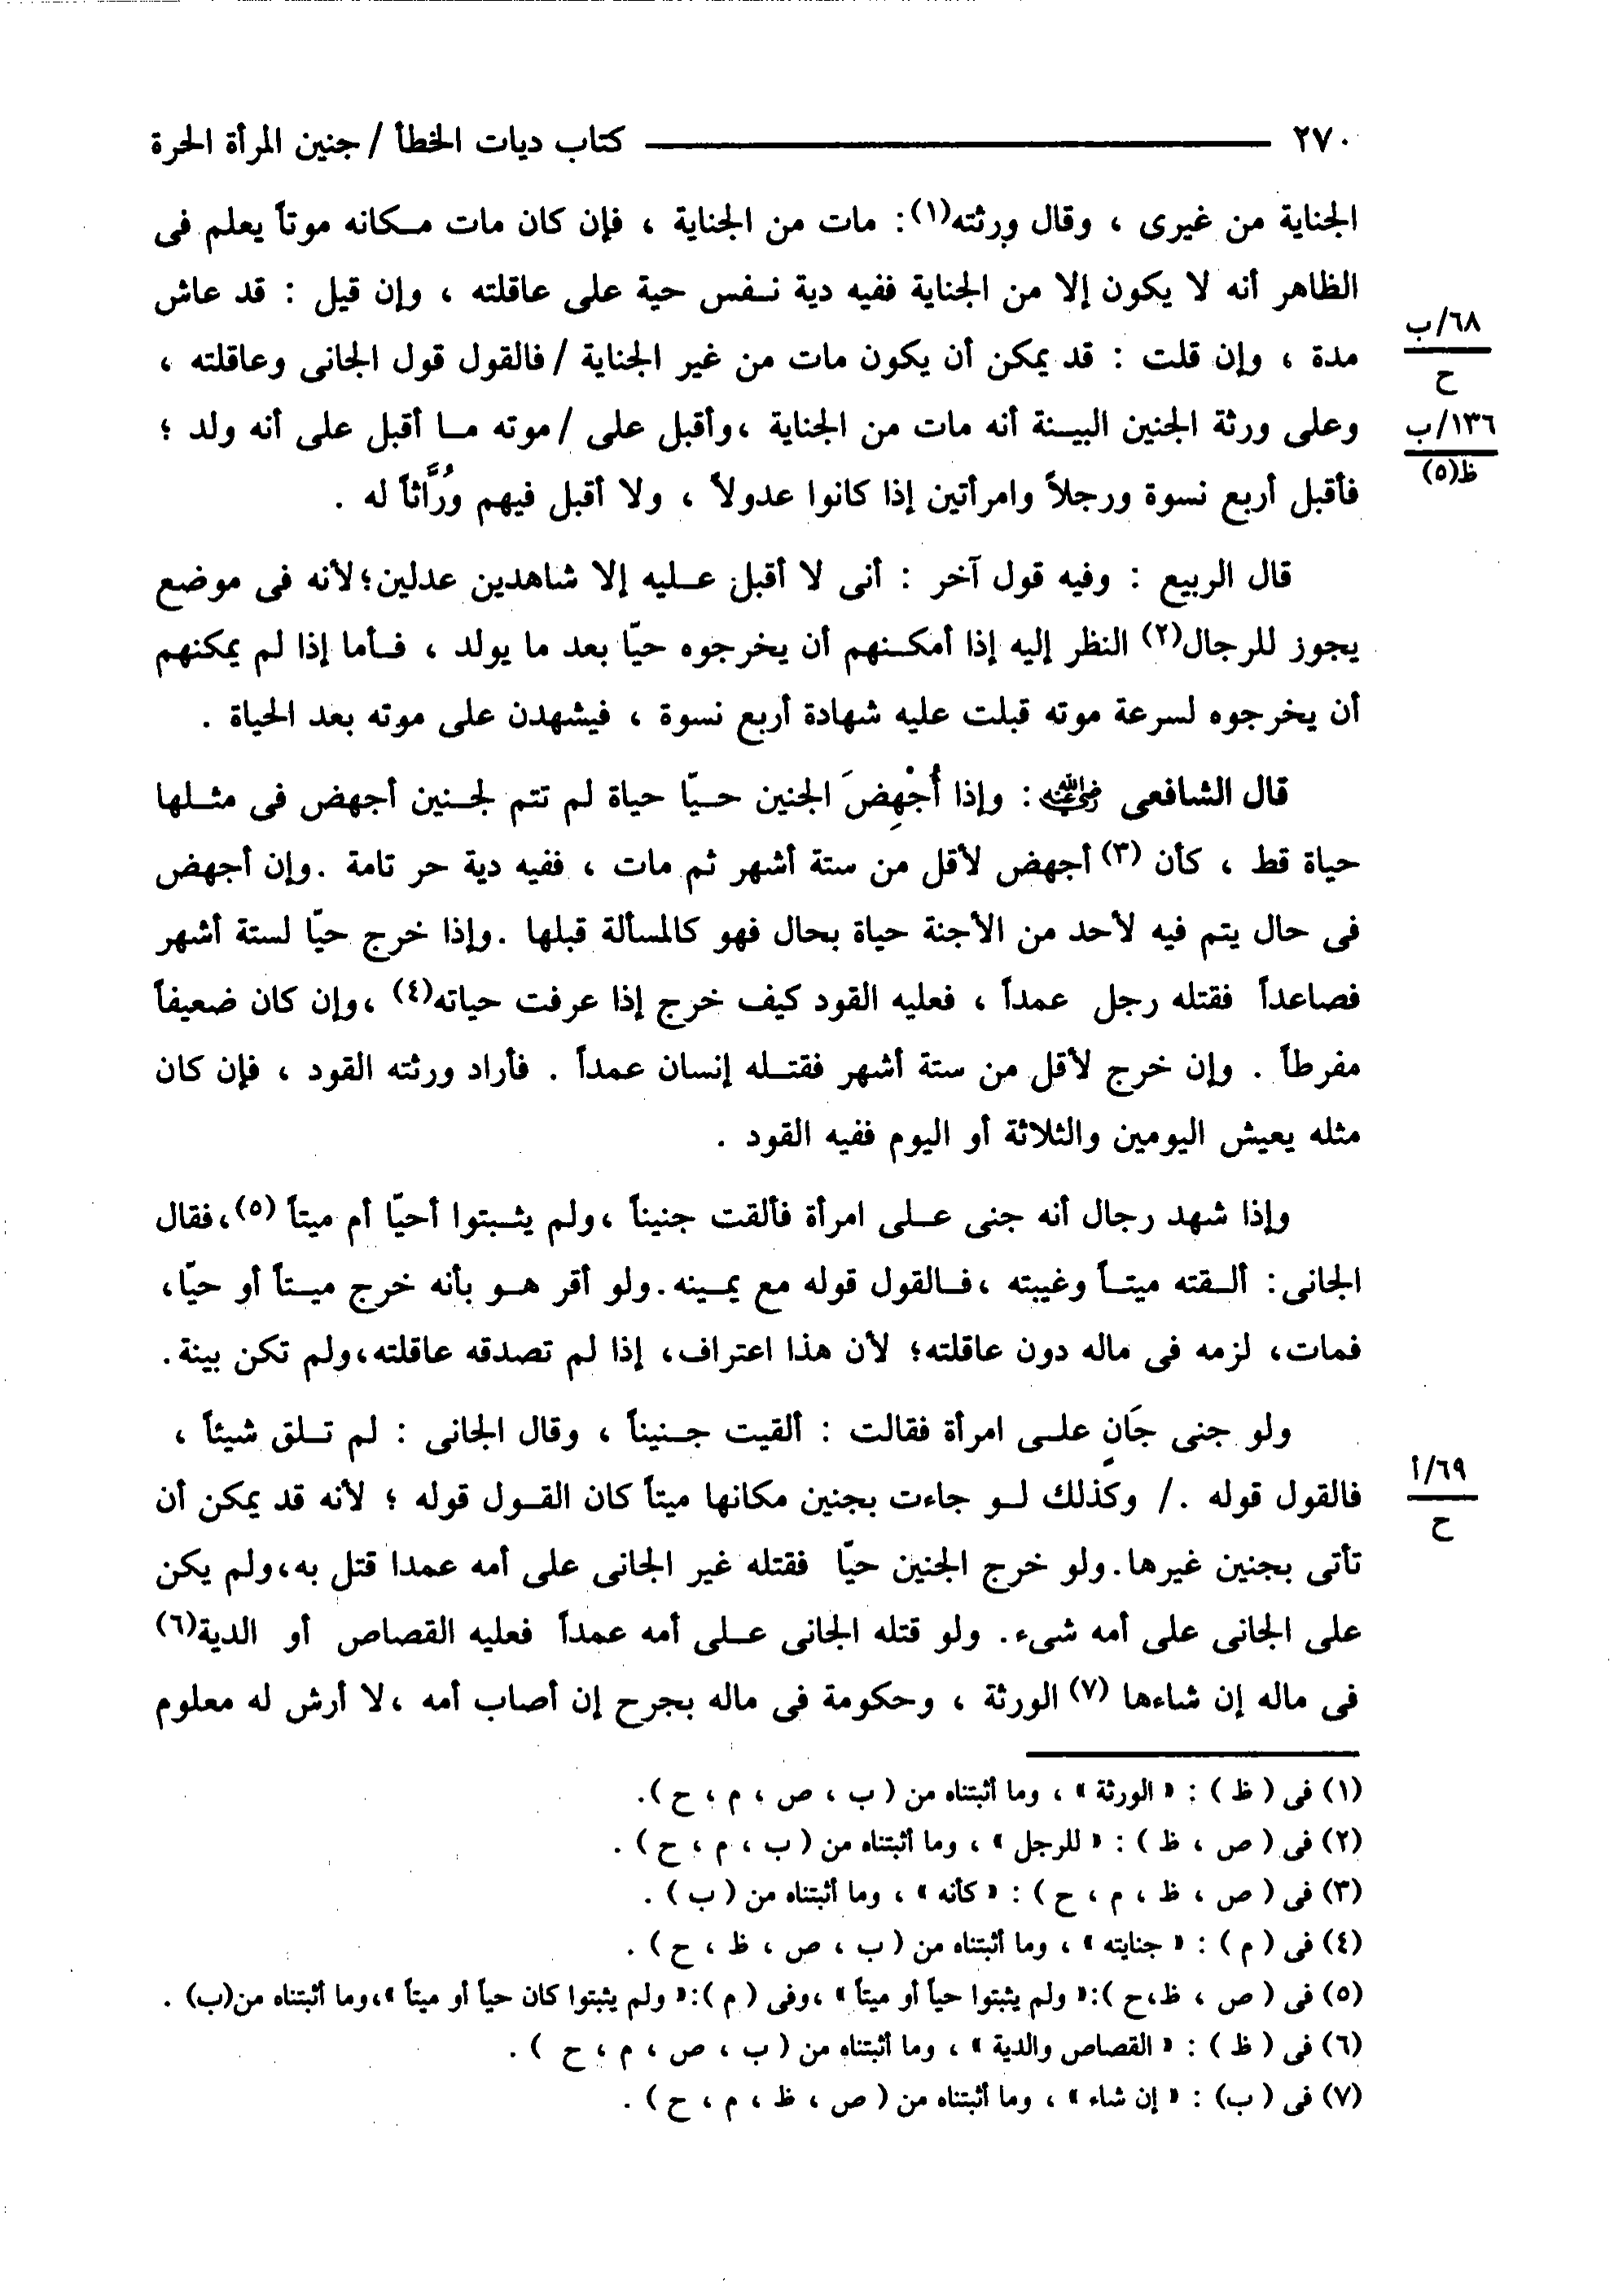 ٢٧٠ كتاب ديات الخطأ / جنين المرأة الحرة
الجناية من غيرى ، وقال ورثته(١): مات من الجناية ، فإن كان مات مكانه موتاً يعلم فى
الظاهر أنه لا يكون إلا من الجناية ففيه دية نفس حية على عاقلته ، وإن قيل : قد عاش
مدة ، وإن قلت : قد يمكن أن يكون مات من غير الجناية / فالقول قول الجانى وعاقلته ،
٦٨/ب
ح
وعلى ورثة الجنين البينة أنه مات من الجناية ،وأقبل على / موته ما أقبل على أنه ولد ؛
١٣٦/ب
ظ(٥)
فأقبل أربع نسوة ورجلاً وامرأتين إذا كانوا عدولاً ، ولا أقبل فيهم وُرَّاثاً له .
قال الربيع : وفيه قول آخر : أنى لا أقبل عليه إلا شاهدين عدلين؛لأنه فى موضع
يجوز للرجال(٢) النظر إليه إذا أمكنهم أن يخرجوه حيّا بعد ما يولد ، فأما إذا لم يمكنهم
أن يخرجوه لسرعة موته قبلت عليه شهادة أربع نسوة ، فيشهدن على موته بعد الحياة .
قال الشافعى رضي الله عنه : وإذا أُجْهِضَ الجنين حيّا حياة لم تتم لجنين أجهض فى مثلها
حياة قط ، كأن (٣) أجهض لأقل من ستة أشهر ثم مات ، ففيه دية حر تامة .وإن أجهض
فى حال يتم فيه لأحد من الأجنة حياة بحال فهو كالمسألة قبلها .وإذا خرج حيّا لستة أشهر
فصاعداً فقتله رجل عمداً ، فعليه القود كيف خرج إذا عرفت حياته(٤) ،وإن كان ضعيفاً
مفرطاً . وإن خرج لأقل من ستة أشهر فقتله إنسان عمداً . فأراد ورثته القود ، فإن كان
مثله يعيش اليومين والثلاثة أو اليوم ففيه القود .
وإذا شهد رجال أنه جنى على امرأة فألقت جنيناً ،ولم يثبتوا أحيّا أم ميتاً (٥)،فقال
الجانى: ألقته ميتاً وغيبته ،فالقول قوله مع يمينه.ولو أقر هو بأنه خرج ميتاً أو حيّا،
فمات، لزمه فى ماله دون عاقلته؛ لأن هذا اعتراف، إذا لم تصدقه عاقلته،ولم تكن بينة.
ولو جنى جَانٍ على امرأة فقالت : ألقيت جنيناً ، وقال الجانى : لم تلق شيئاً ،
فالقول قوله ./ وكذلك لو جاءت بجنين مكانها ميتاً كان القول قوله ؛ لأنه قد يمكن أن
٦٩/أ
ح
تأتى بجنين غيرها.ولو خرج الجنين حيّا فقتله غير الجانى على أمه عمدا قتل به،ولم يكن
على الجانى على أمه شىء. ولو قتله الجانى على أمه عمداً فعليه القصاص أو الدية(٦)
فى ماله إن شاءها (٧) الورثة ، وحكومة فى ماله بجرح إن أصاب أمه ،لا أرش له معلوم
(١) فى ( ظ ) : « الورثة » ، وما أثبتناه من ( ب ، ص ، م ، ح ).
(٢) فى ( ص ، ظ ) : « للرجل » ، وما أثبتناه من ( ب ، م ، ح ) .
(٣) فى ( ص ، ظ ، م ، ح ) : « كأنه » ، وما أثبتناه من ( ب ) .
(٤) فى ( م ) : « جنايته » ، وما أثبتناه من ( ب ، ص ، ظ ، ح ) .
(٥) فى ( ص ، ظ،ح ):« ولم يثبتوا حياً أو ميتاً » ،وفى ( م ):« ولم يثبتوا كان حياً أو ميتاً »،وما أثبتناه من(ب) .
(٦) فى ( ظ ) : « القصاص والدية » ، وما أثبتناه من ( ب ، ص ، م ، ح ) .
(٧) فى ( ب) : « إن شاء » ، وما أثبتناه من ( ص ، ظ ، م ، ح ) .